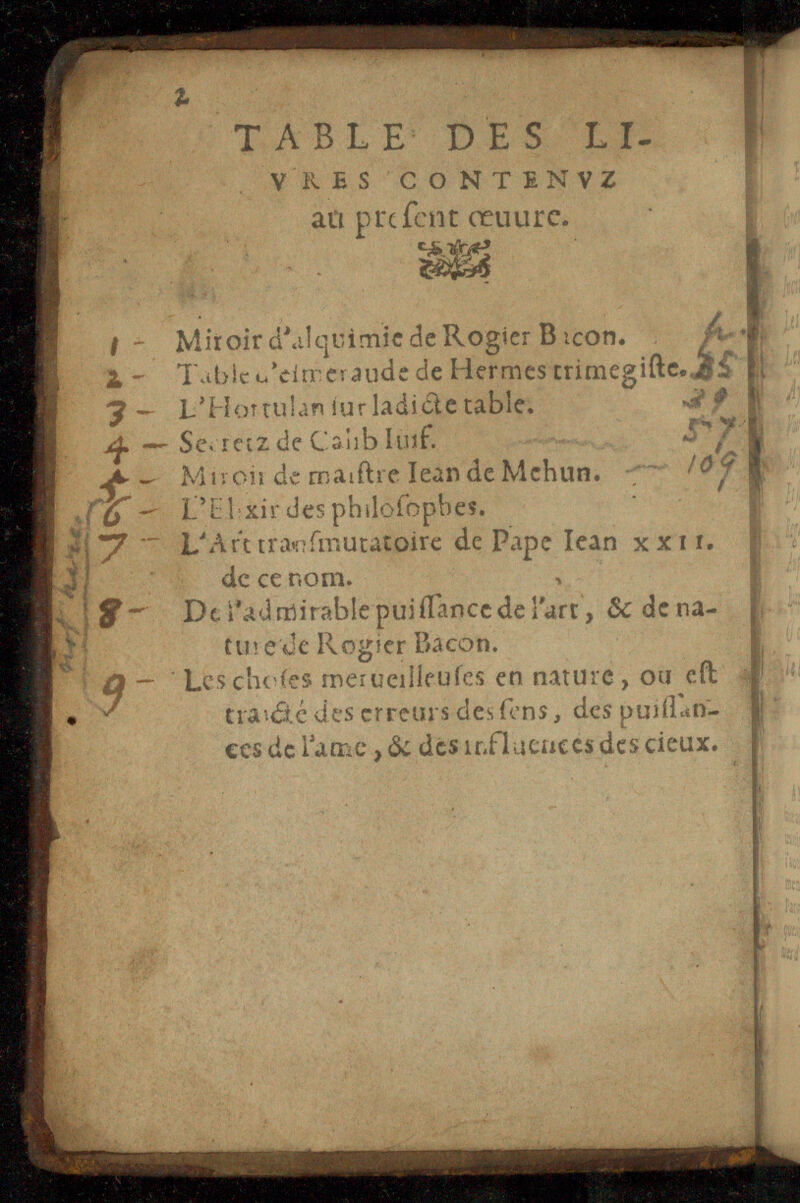 2
TABLE DES LI-
VRES CONTENVZ
au preſent œuure.
1 - Miroir d'alquimie de Rogier Bacon.
2 - Table d'eſmeraude de Hermes trimegiſte. 35
3 - L'Hortulan ſur ladicte table. 39
4 - Secretz de Calib Iuif. 57
Miroir de maiſtre Iean de Mehun. 109
6 - L'Elixir des philoſophes.
7 - L'Art tranſmutatoire de Pape Iean XXII.
de ce nom.
8 - De l'admirable puiſſance de l'art, & de na-
ture de Rogier Bacon.
9 - Les choſes merueilleuſes en nature, ou eſt
traicté des erreurs des ſens, des puiſſan-
ces de l'ame, & des influences des cieux.